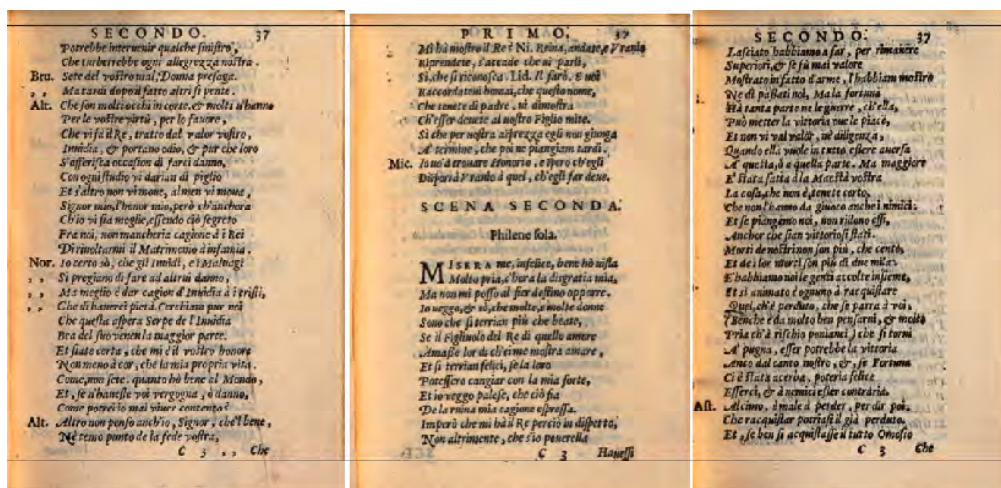 SECONDO. 37
Potrebbe intervenir qualche sinistro,
Che turberebbe ogni allegrezza nostra.
Bru. Sete del vostro mal, Donna presaga.
,, Ma tardi dopo il fatto altri si pente.
Alt. Che son molti occhi in corte, & molti u'hanno
Per le vostre virtù, per lo favore,
Che vi fa il Re, tratto dal valor vostro,
Inuidia, & portano odio, & pur che loro
S'offerisca occasion di farci danno,
Con ogni studio vi darian di piglio
Et s'altro non vi moue, almen vi moua,
Signor mio, l'honor mio, però ch'anchora
Ch'io vi sia moglie, essendo ciò segreto
Fra noi, non mancheria cagione à i Rei
Di riuoltarmi il Matrimonio à infamia.
Nor. Io certo sò, che gli Inuidi, e i Maluagi
,, Si pregiano di fare ad altrui danno,
,, Ma meglio è dar cagion d'Inuidia à i tristi,
,, Che di hauerei pietà. Cerchiam pur noi
Che questa aspera Serpe de l'Inuidia
Bea del suo venen la maggior parte.
Et siate certa, che mi è il vostro honore
Non meno à cor, che la mia propria vita.
Come, non sete, quanto hò bene al Mondo,
Et, se n'haueste voi vergogna, ò danno,
Come potrei io mai viuer contento?
Alt. Altro non penso anch'io, Signor, che'l bene,
Nè temo punto de la fede vostra,
C 3 ,, Che
PRIMO. 37
Mi hà mostro il Re è Ni. Reina, andate, e Vranio
Riprendete, s'accade che ui parli,
Si, che si riconosca. Lid. Il farò. E uoi
Raccordateui homai, che questo nome,
Che tenete di padre, ui dimostra
Ch'esser deuete al uostro Figlio mite.
Si che per uostra asprezza egli non giunga
A' termine, che poi ne piangiam tardi.
Mic. Io uò à trouare Honorio, e spero ch'egli
Disporrà Vranio à quel, ch'egli far deue.
SCENA SECONDA.
Philene sola.
MISERA me, infelice, bene hò uista
Molto pria, c'hora la disgratia mia,
Ma non mi posso al fier destino opporre.
Io ueggo, & sò, che molte, e molte donne
Sono che si terrian più che beate,
Se il Figliuolo del Re di quello amore
Amasse lor di ch'ei me mostra amare,
Et si terrian felici, se la loro
Potessero cangiar con la mia sorte,
Et io veggo palese, che ciò fia
De la ruina mia cagione espressa.
Imperò che mi hà il Re perciò in dispetto,
Non altrimente, che s'io pouerella
C 3 Hauessi
SECONDO. 37
Lasciato habbiamo a far, per rimanere
Superiori, & se fù mai valore
Mostrato in fatto d'arme, l'habbiam mostro
Ne dì passati noi, Ma la fortuna
Hà tanta parte ne le guerre, ch'ella,
Può metter la vittoria oue le piace,
Et non vi val valor, nè diligenza,
Quando ella vuole in tutto essere auersa
A' questa, ò a quella parte. Ma maggiore
E' stata fatta à la Maestà vostra
La cosa, che non è, tenete certo,
Che non l'hanno da giuoco anche i nimici.
Et se piangemo noi, non ridono essi,
Anchor che sian vittoriosi stati.
Morti de nostri non son più, che cento,
Et de i lor morti son più di due mila.
E habbiamo noi le genti accolte insieme,
Et sì animato è ognuno à racquistare
Quel, ch'è perduto, che se parrà à voi,
(Benche è da molto ben pensarui, & molto
Pria ch'à rischio poniamci) che si torni
A' pugna, esser potrebbe la vittoria
Anco dal canto nostro, &, se Fortuna
Ci è stata acerba, poteria felice
Esserci, & à nemici esser contraria.
Ast. Alcimo, è male à perder, per dir poi.
Che racquistar potriasi il già perduto.
Et, se ben si acquistasse il tutto Omosio
C 3 Che